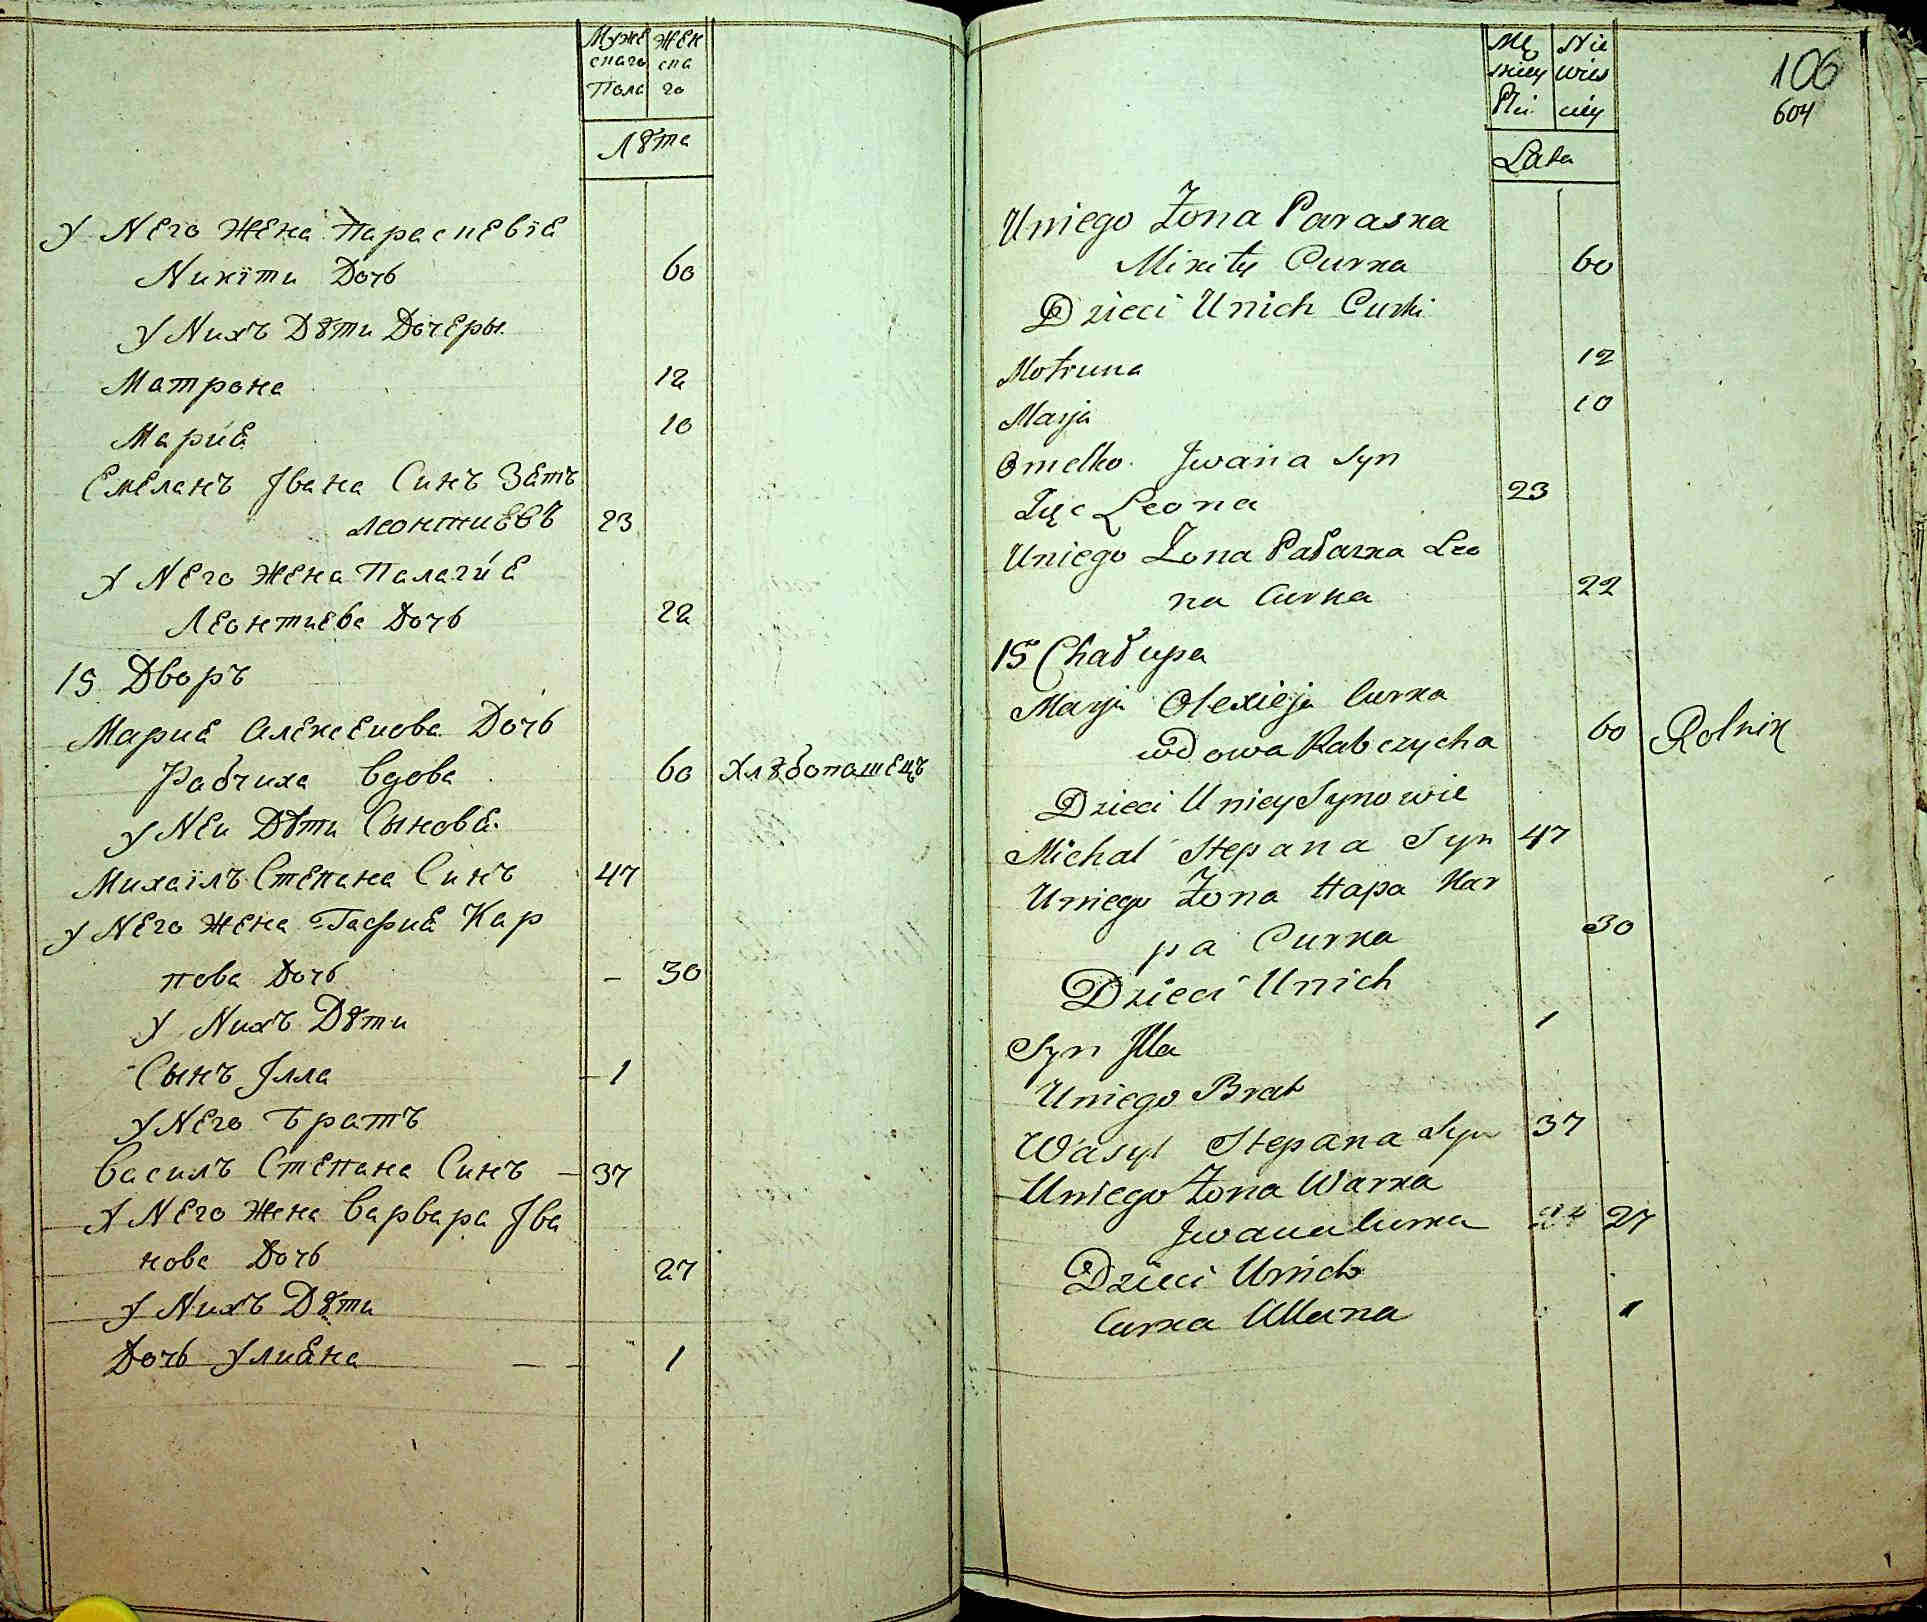 Муже Жен
скаго ска
Пола го
Лѣта
У Него Жена Параскевїя
Никїти Дочь 60
У Нихъ Дѣти Дочеры
Матрона 12
Мария 10
Емелянъ Івана Синъ Зять
Леонтиевъ 23
У Него Жена Палагия
Леонтиева Дочь 22
15 Дворъ
Мария Алексеиова Дочь
Рабчиха вдова 60 Хлѣбопашецъ
У Неи Дѣти Сыновя
Михаїлъ Степана Синъ 47
У Него Жена Гафия Кар
пова Дочь - 30
У Нихъ Дѣти
Сынъ Јлла - 1
У Него Братъ
Василъ Степана Синъ - 37
У Него Жена Варвара Јва
нова Дочь 27
У Нихъ Дѣти
Дочь Улияна - - 1
106
604
Mę Nie
skiey wies
Płci ciey
Lata
Uniego Żona Paraska
Mikity Curka 60
Dzieci Unich Curki
Motruna 12
Marja 10
Omelko Jwana Syn
Zięc Leona 23
Uniego Żona Pałazka Leo
na Curka 22
15 Chałupa
Marja Olexieja Curka
wdowa Rabczycha 60 Rolnik
Dzieci Uniey Synowie
Michał Stepana Syn 47
Uniego Żona Hapa Kar
pa Curka 30
Dzieci Unich
Syn Jlla 1
Uniego Brat
Wasyl Stepana Syn 37
Uniego Żona Warka
Jwana Curka 27
Dzieci Unich
Curka Ullana 1